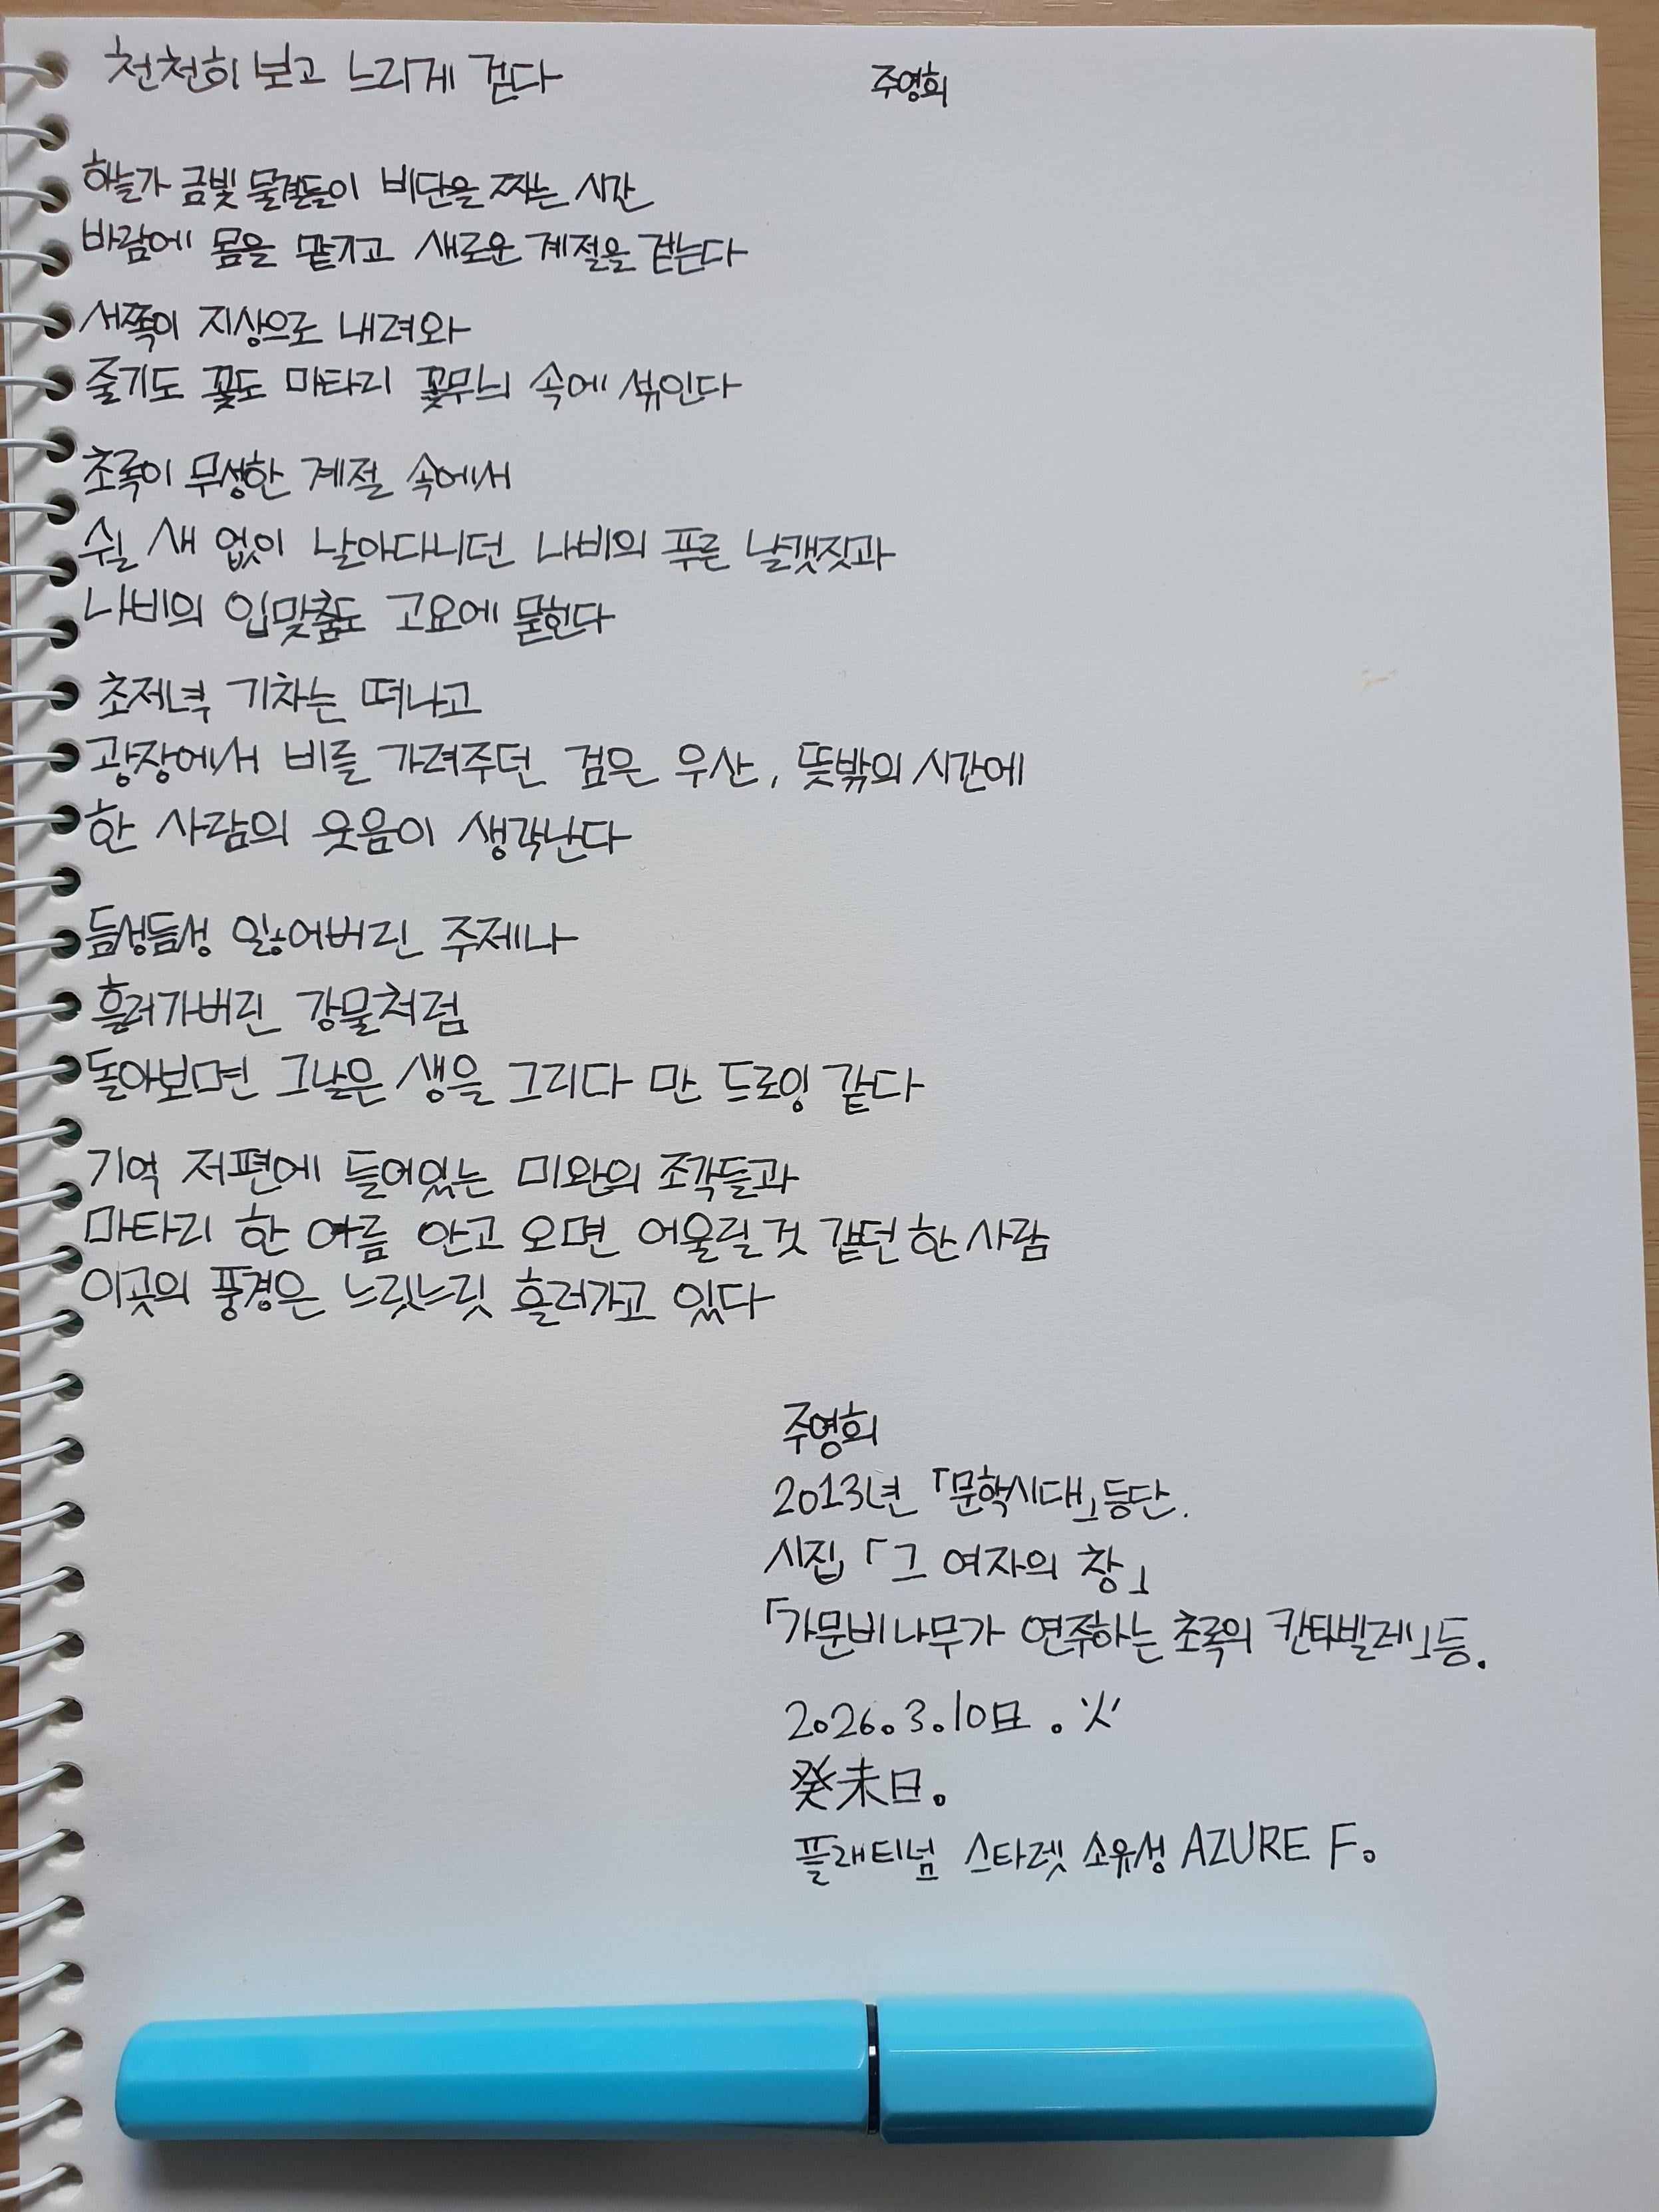 천천히 보고 느리게 걷다 주영희
하늘가 금빛 물결들이 비단을 짜는 시간
바람에 몸을 맡기고 새로운 계절을 걷는다
서쪽이 지상으로 내려와
줄기도 꽃도 마타리 꽃무늬 속에 섞인다
초록이 무성한 계절 속에서
쉴 새 없이 날아다니던 나비의 푸른 날갯짓과
나비의 입맞춤도 고요에 묻힌다
초저녁 기차는 떠나고
광장에서 비를 가려주던 검은 우산, 뜻밖의 시간에
한 사람의 웃음이 생각난다
듬성듬성 잃어버린 주제나
흘러가버린 강물처럼
돌아보면 그날은 생을 그리다 만 드로잉 같다
기억 저편에 들어있는 미완의 조각들과
마타리 한 여름 안고 오면 어울릴 것 같던 한 사람
이곳의 풍경은 느릿느릿 흘러가고 있다
주영희
2013년 「문학시대」등단.
시집 「그 여자의 창」
「가문비나무가 연주하는 초록의 칸타빌레」등.
2026.3.10日.火
癸未日。
플래티넘 스타렛 소유성 AZURE F。